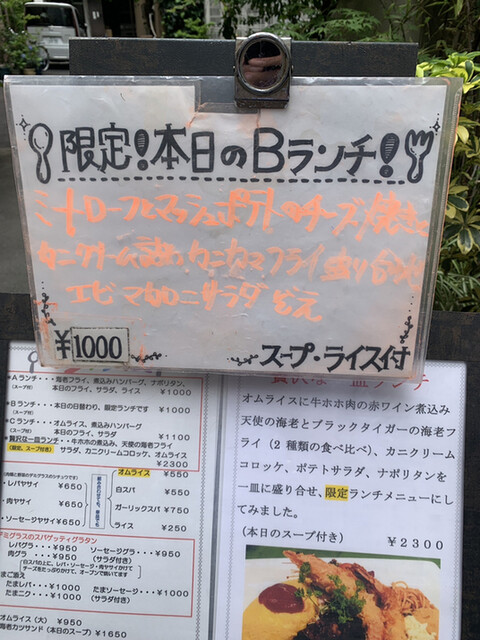 限定!本日のBランチ!
ミートローフとマッシュポテトのチーズ焼きと
カニクリーム詰め カニカマフライ盛り合わせ
エビマカロニサラダ 添え
¥1000
スープ・ライス付
●Aランチ・・・海老フライ、煮込みハンバーグ、ナポリタン、
(スープ付) 本日のフライ、サラダ、ライス ¥1000
●Bランチ・・・本日の日替わり、限定ランチです ¥1000
(スープ付)
●Cランチ・・・オムライス、煮込みハンバーグ、
(スープ付) 本日のフライ、サラダ ¥1100
●贅沢な一皿ランチ・・牛ホホの煮込み、天使の海老フライ
(限定、スープ付) サラダ、カニクリームコロッケ、オムライス
¥2300
オムライス ¥550
・レバヤサイ ¥650
白スパ ¥550
・肉ヤサイ ¥650
ガーリックスパ ¥750
・ソーセージヤサイ ¥650
ライス ¥250
デミグラスのスパゲッティグラタン
レバグラ・・・¥950 ソーセージグラ・・¥950
肉グラ・・・¥950 (サラダ付き)
白スパの上に、レバ・ソーセージ・肉ヤサイかけて
チーズをたっぷりかけて、オーブンで焼いてます
たまご添え
たまレバ・・・¥1000 たまソーセージ・・¥1000
たまニク・・・¥1000 (サラダ付き)
オムライス(大) ¥950
海老カツサンド(本日のスープ) ¥1650
贅沢な一皿ランチ
オムライスに牛ホホ肉の赤ワイン煮込み
天使の海老とブラックタイガーの海老フ
ライ(2種類の食べ比べ)、カニクリーム
コロッケ、ポテトサラダ、ナポリタンを
一皿に盛り合せ、限定ランチメニューにし
てみました。
(本日のスープ付き) ¥2300